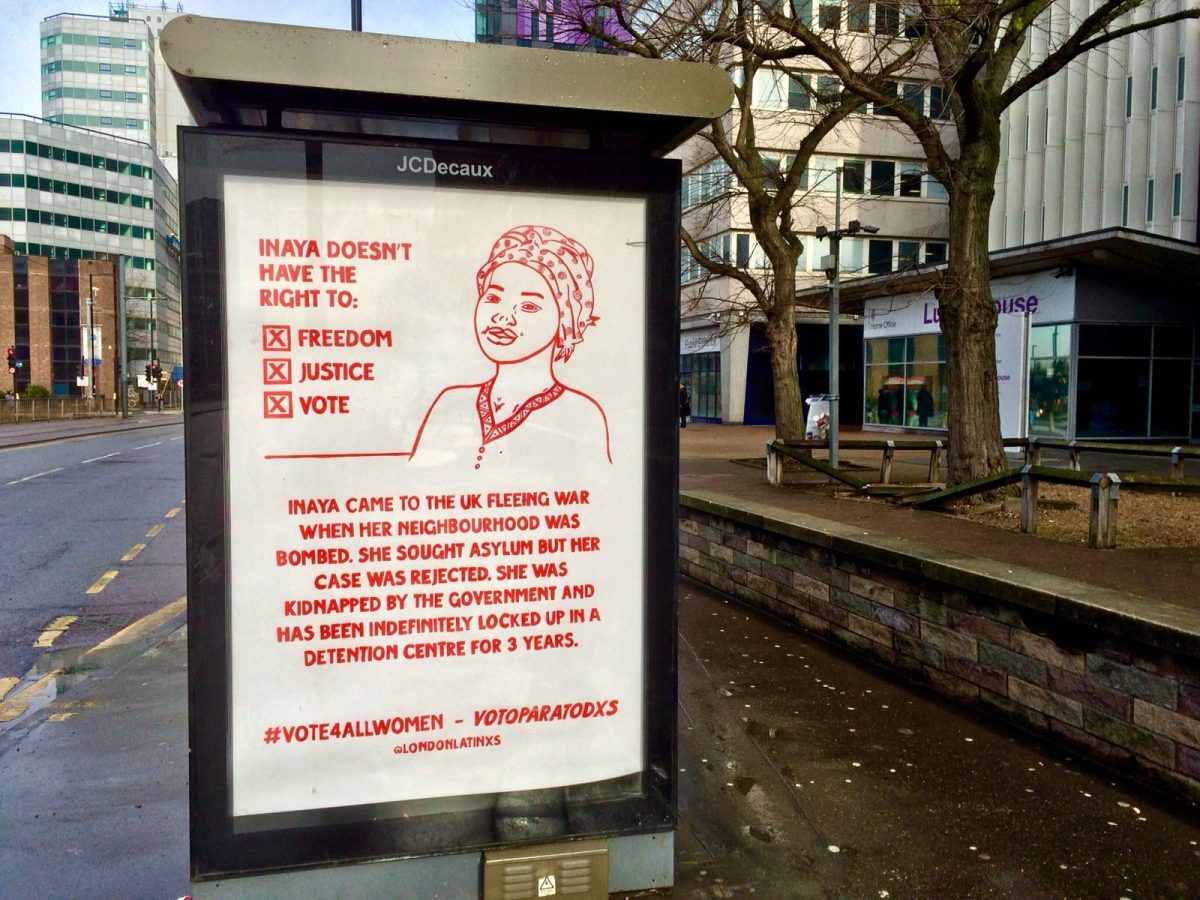 JCDecaux
INAYA DOESN'T
HAVE THE
RIGHT TO:
X FREEDOM
X JUSTICE
X VOTE
INAYA CAME TO THE UK FLEEING WAR
WHEN HER NEIGHBOURHOOD WAS
BOMBED. SHE SOUGHT ASYLUM BUT HER
CASE WAS REJECTED. SHE WAS
KIDNAPPED BY THE GOVERNMENT AND
HAS BEEN INDEFINITELY LOCKED UP IN A
DETENTION CENTRE FOR 3 YEARS.
#VOTE4ALLWOMEN - VOTOPARATODXS
@LONDONLATINXS
Home Office
Public Entrance